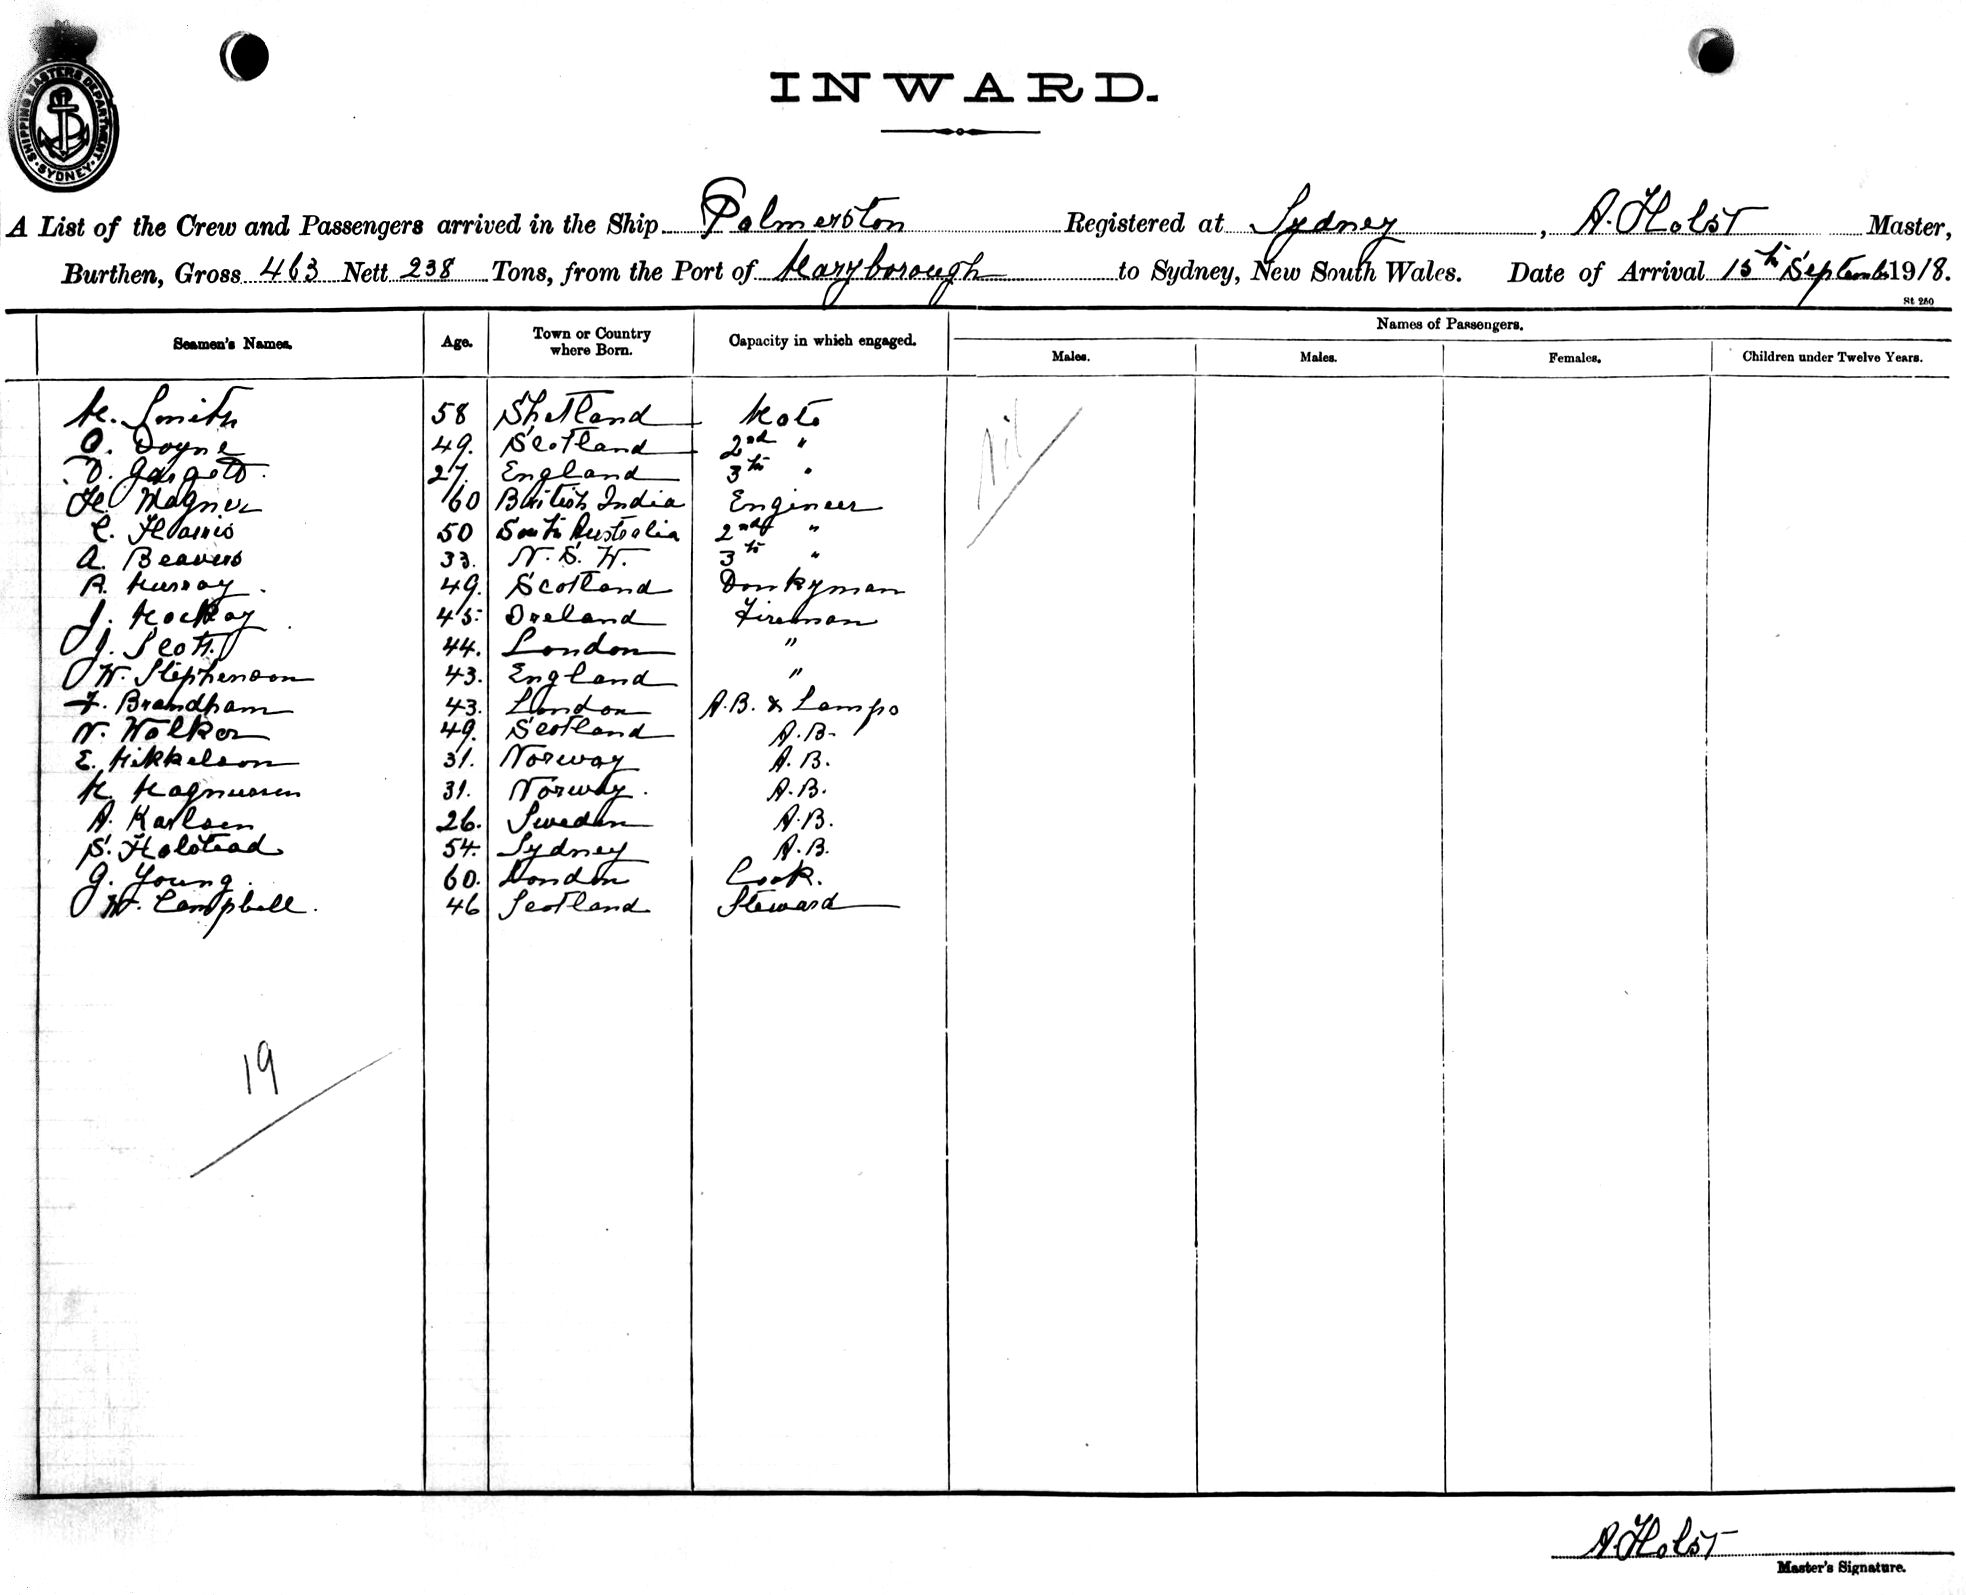 SHIPPING MASTERS DEPARTMENT. SYDNEY
INWARD.
A List of the Crew and Passengers arrived in the Ship Palmerston Registered at Sydney, A. Holst Master,
Burthen, Gross 463 Nett 238 Tons, from the Port of Maryborough to Sydney, New South Wales. Date of Arrival 15th September 1918.
St 280
Seamen's Names. Age. Town or Country where Born. Capacity in which engaged. Names of Passengers.
Males. Males. Females. Children under Twelve Years.
M. Smith 58 Shetland Mate
O. Doyne 49. Scotland 2nd "
27. England 3th "
H. Wagner 60 British India Engineer
C. Harris 50 South Australia 2nd "
A. Beavers 33. N. S. W. 3th "
R. Murray. 49. Scotland Donkyman
J. Mackay. 45. Ireland Fireman
J. Scott. 44. London "
W. Stephenson 43. England "
F. Brandham 43. London A.B. & Lamps
N. Walker 49. Scotland A.B.
E. Mikkelson 31. Norway A.B.
M. Magnussen 31. Norway. A.B.
A. Karlsen 26. Sweden A.B.
S. Halstead 54. Sydney A.B.
G. Young. 60. London Cook.
W. Campbell. 46 Scotland Steward
Nil
19
A. Holst
Master's Signature.